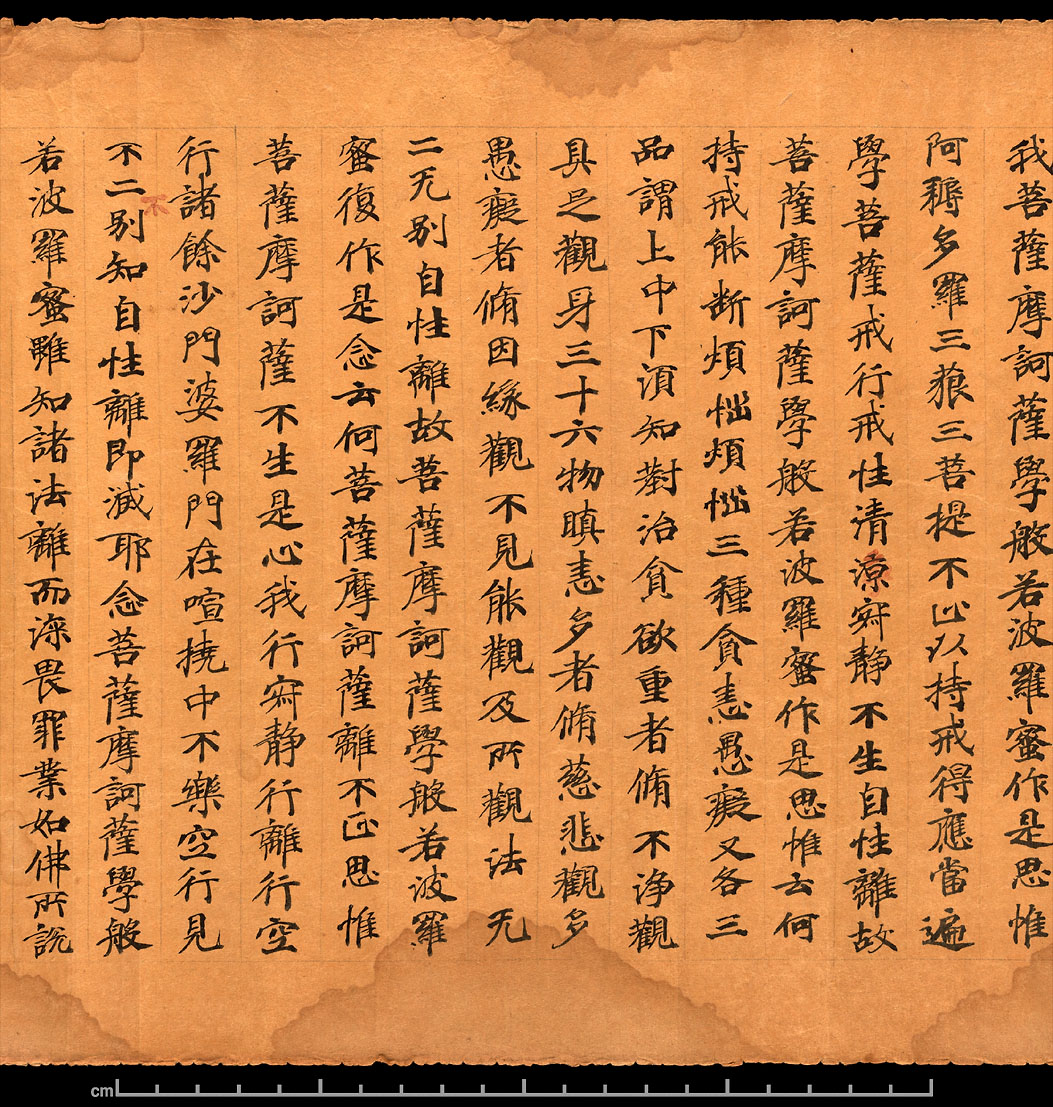 我菩薩摩訶薩學般若波羅蜜作是思惟
阿耨多羅三藐三菩提不止以持戒得應當遍
學菩薩戒行戒性清凉寂静不生自性離故
菩薩摩訶薩學般若波羅蜜作是思惟云何
持戒能断煩惱煩惱三種貪恚愚癡又各三
品謂上中下須知對治貪欲重者脩不净觀
具足觀身三十六物瞋恚多者脩慈悲觀多
愚癡者脩因緣觀不見能觀及所觀法无
二无别自性離故菩薩摩訶薩學般若波羅
蜜復作是念云何菩薩摩訶薩離不正思惟
菩薩摩訶薩不生是心我行寂静行離行空
行諸餘沙門婆羅門在喧撓中不樂空行見
不二别知自性離即滅耶念菩薩摩訶薩學般
不
若波羅蜜雖知諸法離而深畏罪業如佛所說
cm